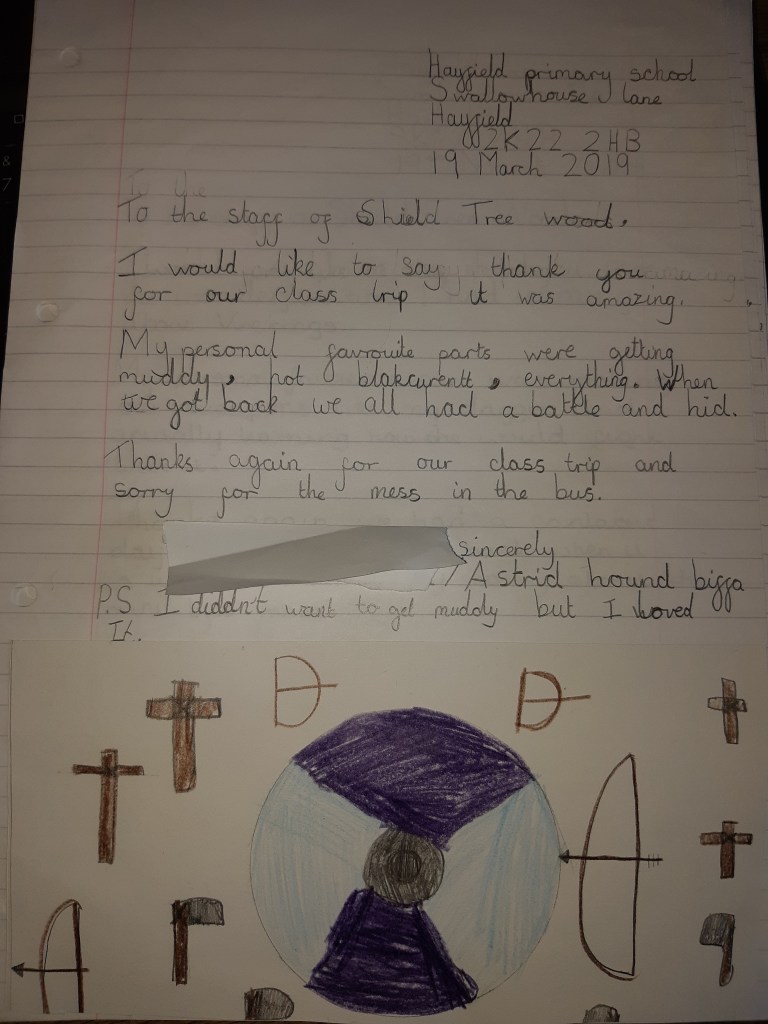 Hayfield primary school
Swallowhouse lane
Hayfield
2K22 2HB
19 March 2019
To the
To the staff of Shield Tree wood,
I would like to say thank you
for our class trip it was amazing.
My personal favrouite parts were getting
muddy, hot blakcurentt, everything. When
we got back we all had a battle and hid.
Thanks again for our class trip and
sorry for the mess in the bus.
sincerely
Astrid hound bigga
P.S I diddn't want to get muddy but I loved
It.